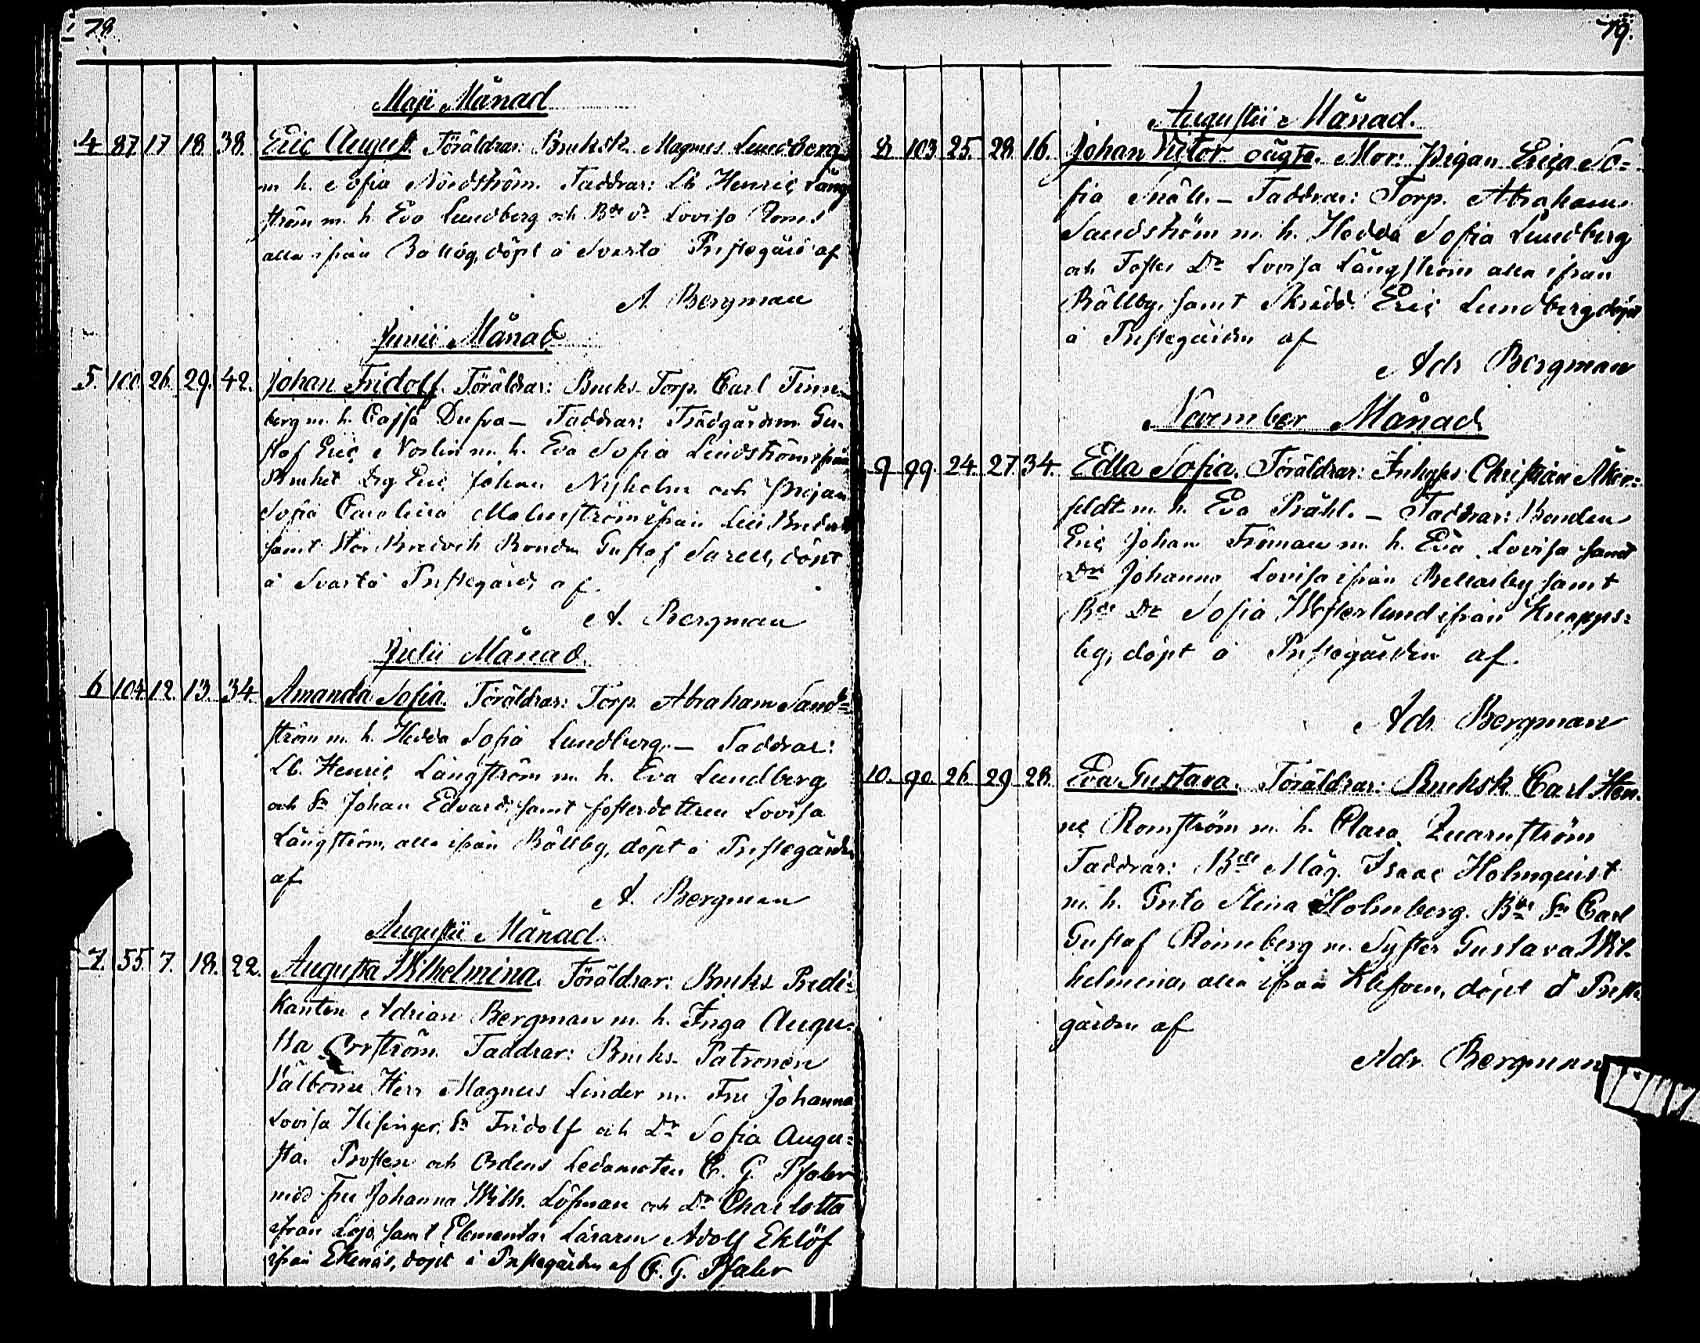 78.
Maji Månad
4 87 17 18 38 Eric August. Föräldrar: Bruksk. Magnus Lundberg
m. h. Sofia Nordström. Faddrar: Lb. Henric Läng-
ström m. h. Eva Lundberg och Lovisa
alla ifrån döpt å Svartå Prestegård af
A. Bergman
Junii Månad
5. 100. 26. 29. 42. Johan Fridolf. Föräldrar: Bruks Torp. Carl Finn-
berg m. h. Cajsa Dufva — Faddrar: Trädgårdsm. Gu-
staf Eric Norlin m. h. Eva Sofia Lindström ifrån
Bruket Dr͞g Eric Johan Nyholm och Pigan
Sofia Carolina Malmström ifrån
samt Stor Bredvik Bonden Gustaf Sarell, döpt
å Svartå Prestegård af
A. Bergman
Julii Månad.
6 104 12. 13. 34. Amanda Sofia. Föräldrar: Torp. Abraham Sand-
ström m. h. Hedda Sofia Lundberg. — Faddrar:
Lb. Henric Längström m. h. Eva Lundberg
och Sn Johan Edvard samt fosterdottren Lovisa
Längström, alla ifrån Bällby, döpt å Prestegården
af
A. Bergman
Augustii Månad.
7. 55. 7. 18. 22. Augusta Wilhelmina. Föräldrar: Bruks Predi-
kanten Adrian Bergman m. h. Inga Augu-
sta Orrström. Faddrar: Bruks Patronen
Välborne Herr Magnus Linder m. Fru Johanna
Lovisa Hisinger, Sn Fridolf och Dr Sofia Augu-
sta. Prosten och Ordens Ledamoten C. G. Pfaler
med fru Johanna Wilh. Löfman och Dr Charlotta
ifrån Lojo samt Elementar Läraren Adolf Eklöf
ifrån Ekenäs, döpt å Prestegården af C. G. Pfaler
79.
Augustii Månad.
8 103 25. 28. 16. Johan Victor oägta. Mor: Pigan Erica So-
fia Snäll. — Faddrar: Torp. Abraham
Sandström m. h. Hedda Sofia Lundberg
och Foster Dr Lovisa Längström alla ifrån
Bällby, samt Skrädd. Eric Lundberg döpt
å Prestegården af
Adr Bergman
November Månad
9 99. 24. 27. 34. Edla Sofia. Föräldrar: Inhyses Christian Åker-
feldt m. h. Eva Pråhl. — Faddrar: Bonden
Eric Johan Froman m. h. Eva Lovisa samt
Dr Johanna Lovisa ifrån samt
Dr Sofia Westerlund ifrån Knapps-
by, döpt å Prestegården af.
Adr. Bergman
10. 90. 26. 29 28. Eva Gustava. Föräldrar: Bruksk Carl Hen-
ric Romström m. h. Clara Quarnström
Faddrar: Bde Måg. Isaac Holmquist
m. h. Greta Stina Holmberg. Sn Carl
Gustaf Rönneberg m. Syster Gustava Wil-
helmina, alla ifrån döpt å Preste-
gården af
Adr. Bergman